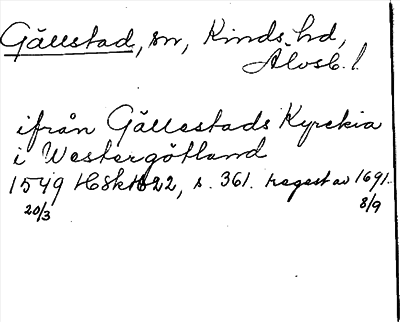 Gällstad, sn, Kinds hd,
Älvsb. l.
ifrån Gällestads Kyrckia
i Westergötland
1549 HSH 22, s. 361. regest av 1691.
20/3 8/9